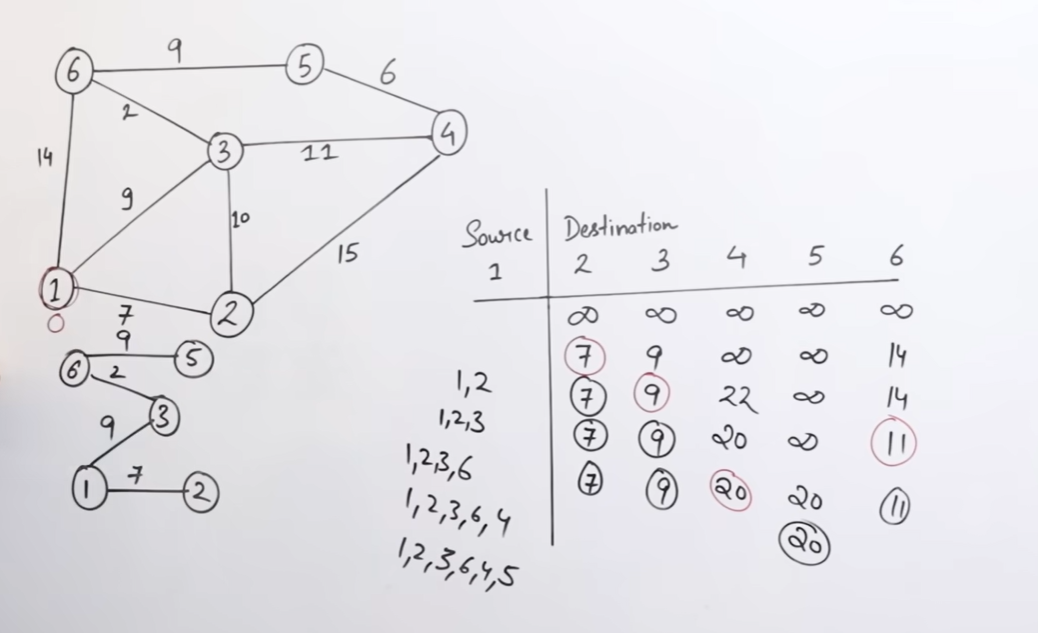 9
6
5
6
2
4
3
11
14
9
10
15
1
7
2
0
9
6
5
2
3
9
1
7
2
Source
Destination
1
2 3 4 5 6
∞ ∞ ∞ ∞ ∞
7 9 ∞ ∞ 14
1,2 7 9 22 ∞ 14
1,2,3 7 9 20 ∞ 11
1,2,3,6 7 9 20 20 11
1,2,3,6,4
20
1,2,3,6,4,5